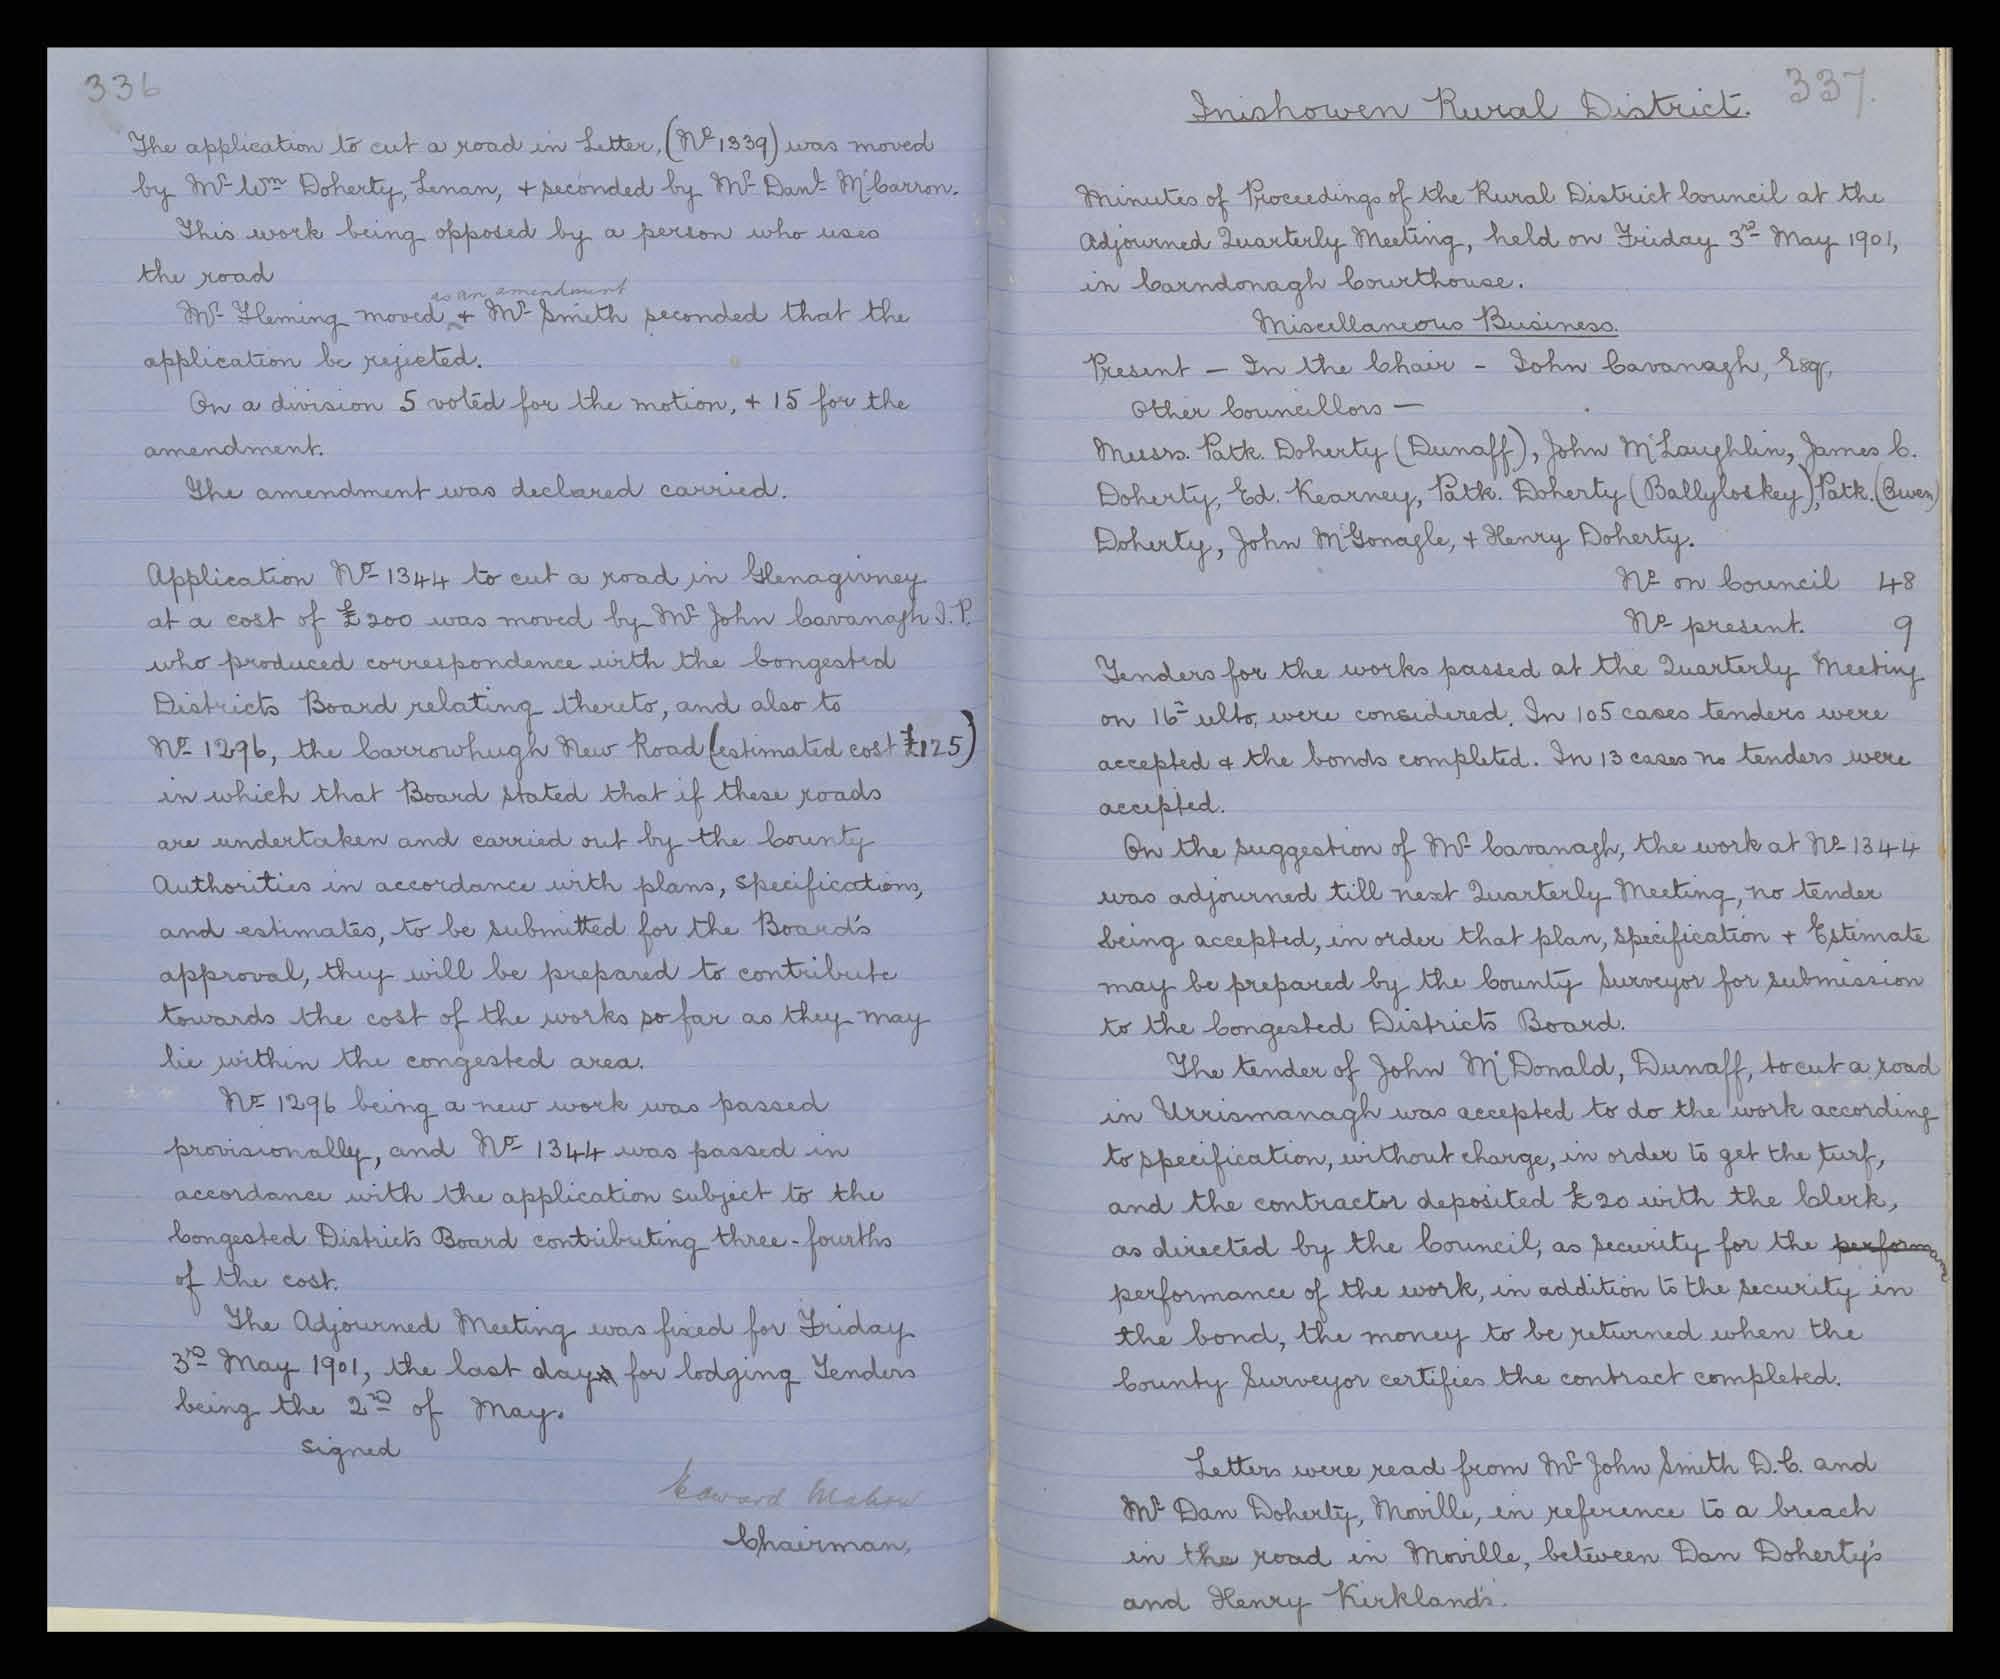 336
The application to cut a road in Letter, (No 1339) was moved
by Mr Wm Doherty, Lenan, + seconded by Mr Danl McCarron.
This work being opposed by a person who uses
the road
as an amendment
Mr Fleming moved ^ + Mr Smith seconded that the
application be rejected.
On a division 5 voted for the motion, + 15 for the
amendment.
The amendment was declared carried.
Application No 1344 to cut a road in Glenagivney
at a cost of £200 was moved by Mr John Cavanagh J.P.
who produced correspondence with the Congested
Districts Board relating thereto, and also to
No 1296, the Carrowhugh New Road (estimated cost £125)
in which that Board stated that if these roads
are undertaken and carried out by the County
Authorities in accordance with plans, specifications,
and estimates, to be submitted for the Board's
approval, they will be prepared to contribute
towards the cost of the works so far as they may
lie within the congested area.
No 1296 being a new work was passed
provisionally, and No 1344 was passed in
accordance with the application subject to the
Congested Districts Board contributing three-fourths
of the cost.
The Adjourned Meeting was fixed for Friday
3rd May 1901, the last day for lodging Tenders
being the 2nd of May.
signed
Edward
Chairman,
337.
Inishowen Rural District.
Minutes of Proceedings of the Rural District Council at the
Adjourned Quarterly Meeting, held on Friday 3rd May 1901,
in Carndonagh Courthouse.
Miscellaneous Business.
Present – In the Chair – John Cavanagh, Esq,
Other Councillors –
Messrs. Patk. Doherty (Dunaff), John McLaughlin, James C.
Doherty, Ed. Kearney, Patk. Doherty (Ballyloskey), Patk. (Owen)
Doherty, John McGonagle, + Henry Doherty.
No on Council 48
No present. 9
Tenders for the works passed at the Quarterly Meeting
on 16th ulto, were considered. In 105 cases tenders were
accepted + the bonds completed. In 13 cases no tenders were
accepted.
On the suggestion of Mr Cavanagh, the work at No 1344
was adjourned till next Quarterly Meeting, no tender
being accepted, in order that plan, specification + Estimate
may be prepared by the County Surveyor for submission
to the Congested Districts Board.
The tender of John McDonald, Dunaff, to cut a road
in Urrismanagh was accepted to do the work according
to specification, without charge, in order to get the turf,
and the contractor deposited £20 with the Clerk,
as directed by the Council, as security for the performance
performance of the work, in addition to the security in
the bond, the money to be returned when the
County Surveyor certifies the contract completed.
Letters were read from Mr John Smith D.C. and
Mr Dan Doherty, Moville, in reference to a breach
in the road in Moville, between Dan Doherty's
and Henry Kirkland's.